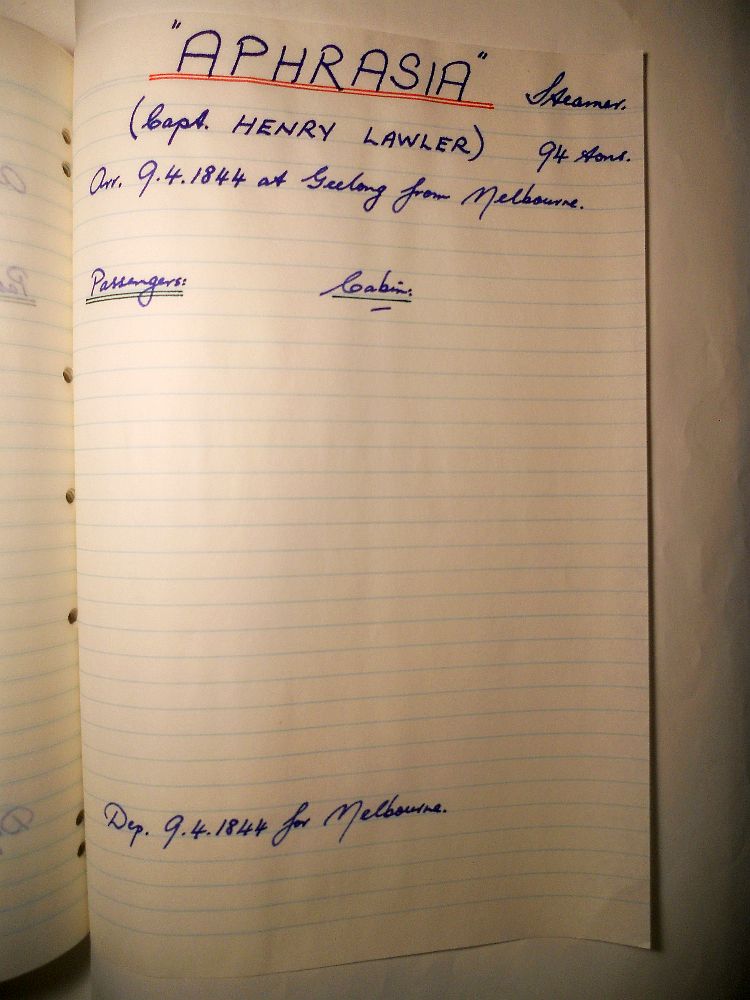 "APHRASIA" Steamer.
(Capt. HENRY LAWLER) 94 tons.
Arr. 9.4.1844 at Geelong from Melbourne.
Passengers: Cabin:
Dep. 9.4.1844 for Melbourne.